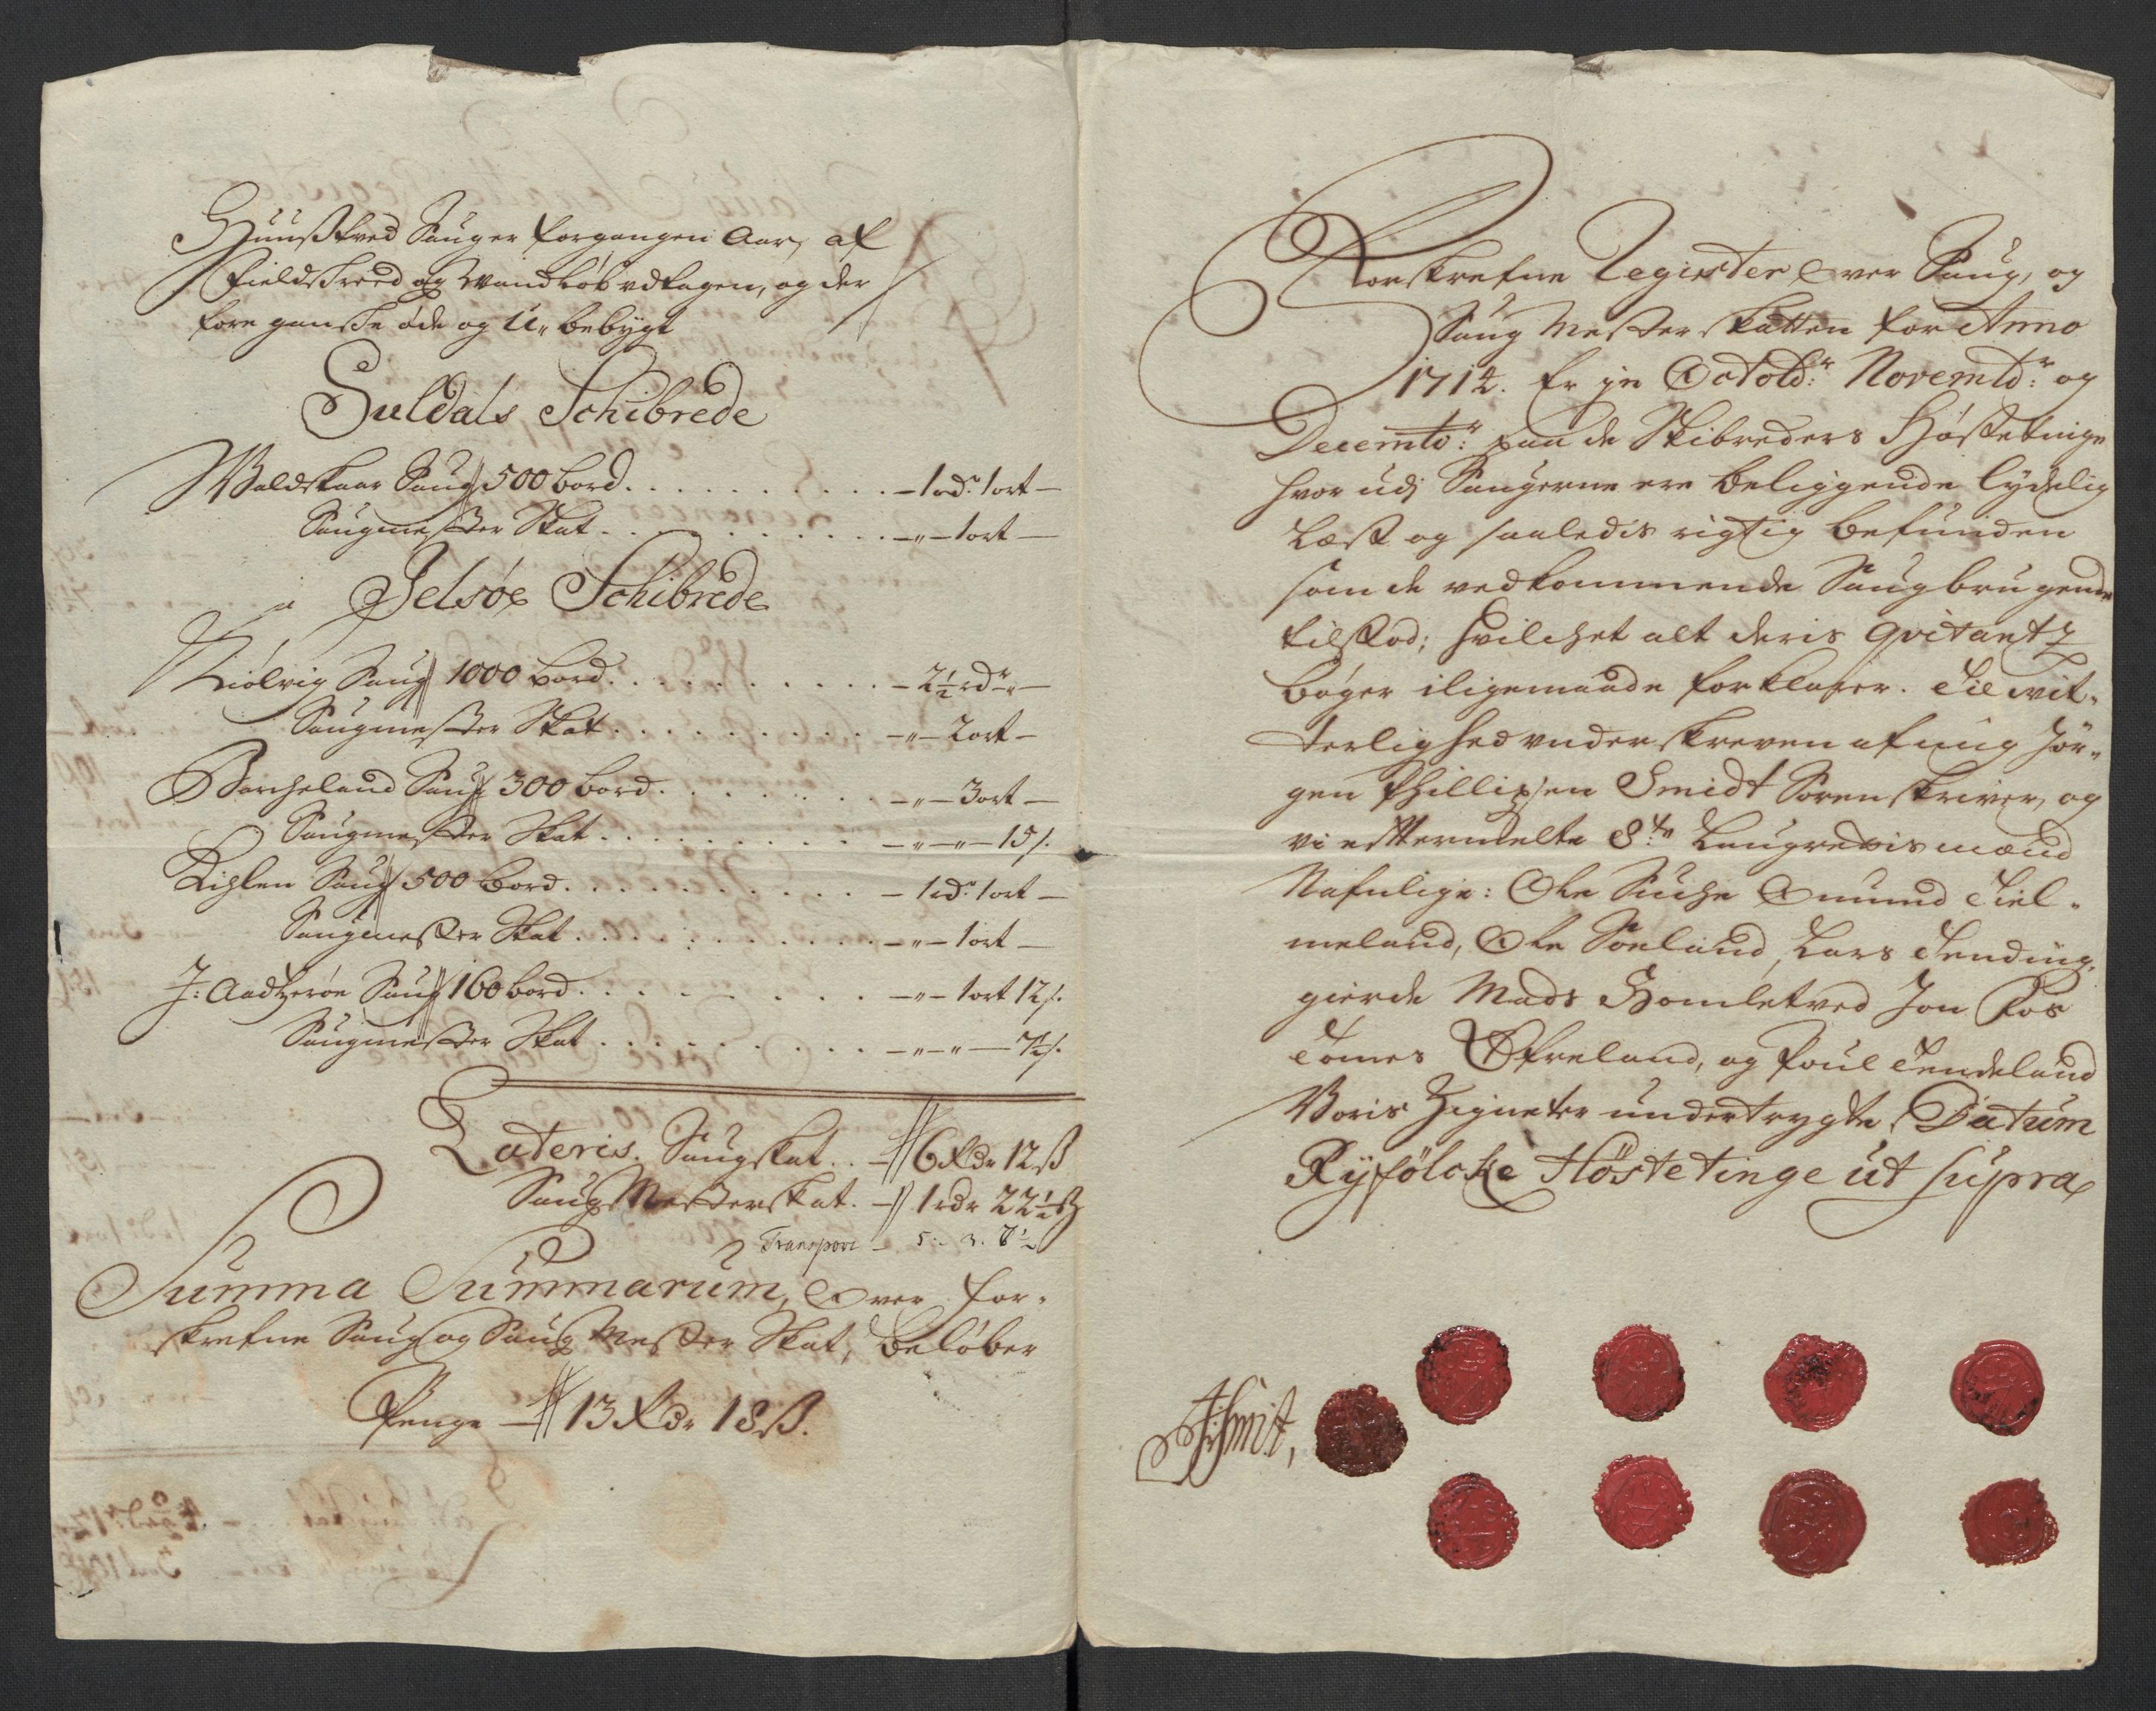 Huusstved Sauger forgangen Aar, af
Fieldskreed og Wandløb udtagen, og der
fore gandske øde og U„bebygt
Suldals Schibrede
Waldskaar Saug 500 bord . . . . . . . . . . — 1 rdr: 1 ort —
Saugmester Skat . . . . . . . . . . —„— 1 ort —
Jelsøe Schibrede
Kiölvig Saug 1000 bord . . . . . . . . . — 2½ rdr —„—
Saugmester Skat . . . . . . . . . —„— 2 ort —
Barcheland Saug 300 bord . . . . . . . —„— 3 ort —
Saugmester Skat . . . . . . . . . —„—„— 15 s.
Kihlen Saug 500 bord . . . . . . . . . — 1 rdr: 1 ort —
Saugmester Skat . . . . . . . . . . —„— 1 ort —
J: Aadzerøe Saug 160 bord . . . . . . . . —„— 1 ort 12 s.
Saugmester Skat . . . . . . . . . —„—„— 7½ s.
Lateris. Saugskat . . — 6 Rdr 12 ß
Saug Mesterskat. — 1 rdr 22½ ß
Transport — 5 .. 3. 7½
Summa Summarum, Over for„
skrefne Saug og Saug Mester Skat, beløber
Penge — 13 Rdr 18 ß.
Forskrefne Register Over Saug, og
Saug Mester skatten for Anno
1714. Er paa Octobr: Novembr: og
Decembr: paa de Skibreders Høstetinge
hvor udj Saugerne ere beliggende lydelig
Læst og saaledis rigtig befunden
som de vedkommende Saugbrugende
tilstod; hvilchet alt deris Qvitantz
bøger iligemaade forklarer. Til vit„
terlighed underskreven af mig Jør„
gen Phillipsen Smidt Sorenskriver, og
vi efftermelte 8te Laugrettismænd
Nafnlige: Ole Omund Tiel„
meland, Ole Soeland, Lars Tending„
gierde Mads Homletved Jon Fos
Tomes Øfreland, og Poul Tendeland
Voris Zigneter undertrygte, Datum
Ryfölcke Høstetinge ut supra
JPSmidt,